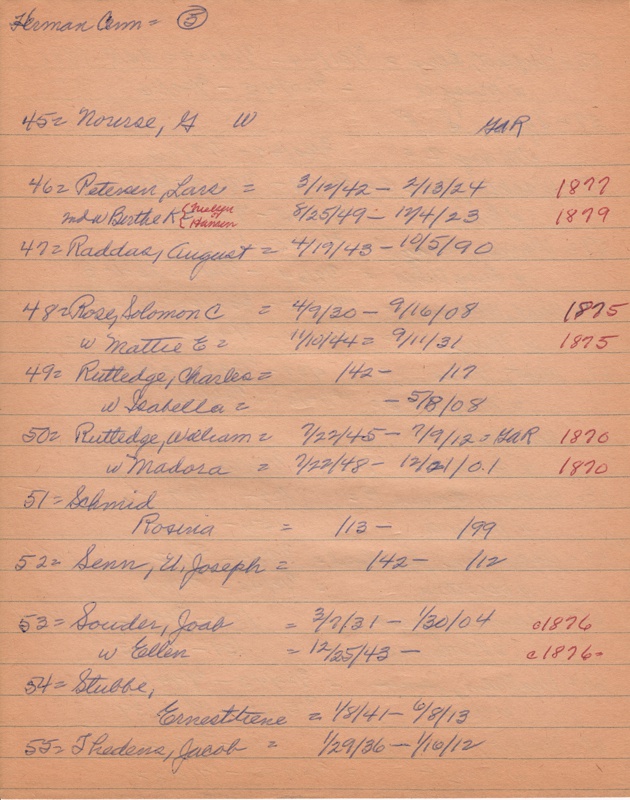 Herman Cem = 5
45= Nourse, G W GAR
46= Petersen, Lars = 3/12/42 - 2/13/24 1877
md w Berthe K {Nielsen or Hansen 8/25/49 - 12/4/23 1879
47= Raddas, August = 4/19/43 - 10/5/90
48= Rose, Solomon C = 4/9/30 - 9/16/08 1875
w Mattie E = 11/10/44 = 9/11/31 1875
49= Rutledge, Charles = /42 - /17
w Isabella = - 5/8/08
50= Rutledge, William = 7/22/45 - 7/9/12 = GAR 1870
w Madora = 7/22/48 - 12/21/01 1870
51= Schmid
Rosina = /13 - /99
52= Senn, U. Joseph = /42 - /12
53= Souder, Joab = 3/7/31 - 1/30/04 c1876
w Ellen = 12/25/43 - c1876=
54= Stubbe,
Ernestiene = 1/8/41 - 6/8/13
55= Thedens, Jacob = 1/29/36 - 1/16/12